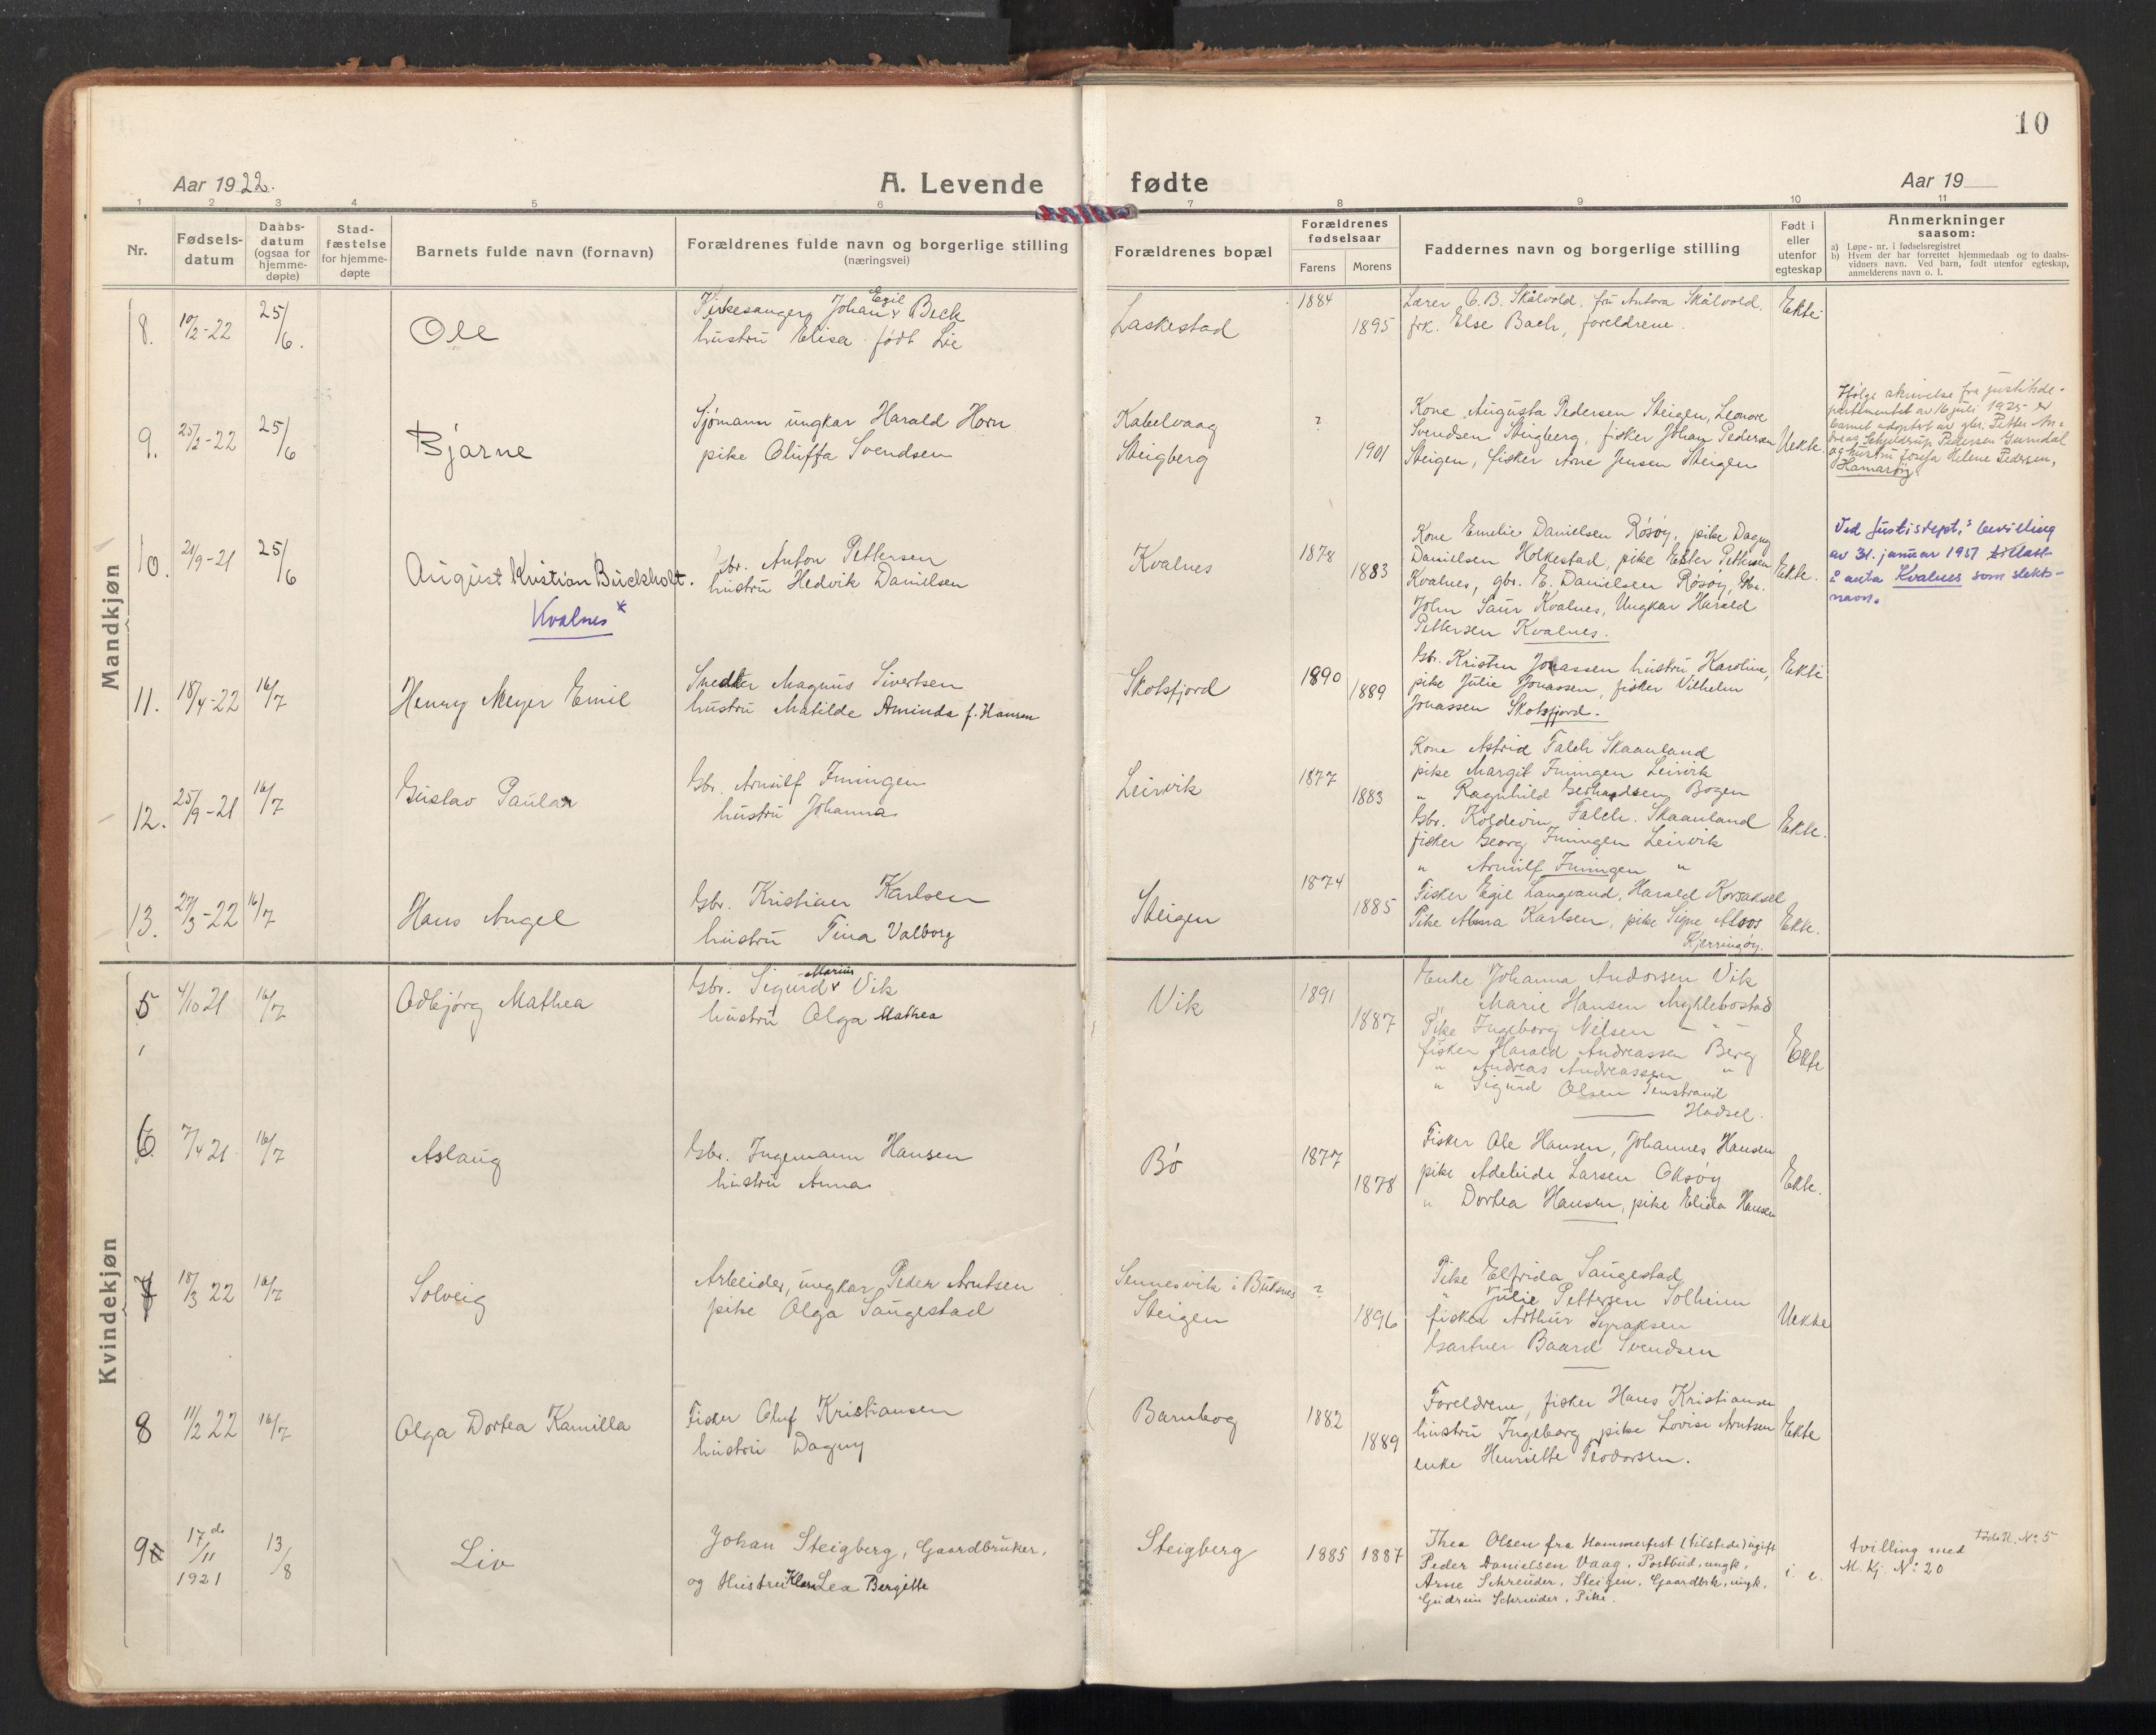 10
Aar 1922.
A. Levende fødte
Aar 19
1 2 3 4 5 6 7 8 9 10 11
Nr.
Fødsels-
datum
Daabs-
datum
(ogsaa for
hjemme-
døpte)
Stad-
fæstelse
for hjemme-
døpte
Barnets fulde navn (fornavn)
Forældrenes fulde navn og borgerlige stilling
(næringsvei)
Forældrenes bopæl
Forældrenes
fødselsaar
Farens Morens
Faddernes navn og borgerlige stilling
Født i
eller
utenfor
egteskap
Anmerkninger
saasom:
a) Løpe-nr. i fødselsregistret
b) Hvem der har forrettet hjemmedaab og to daabs-
vidners navn. Ved barn, født utenfor egteskap,
anmelderens navn o. l.
Mandkjøn
8. 10/2-22 25/6. Ole
Kirkesanger Johan Egil Beck
hustru Elisa født Lie
Laskestad
1884 1895
Lærer C. B. Skålvold. fru Antora Skålvold.
frk. Else Bach, foreldrene.
Ekte
9. 25/2-22 25/6 Bjarne
Sjømann ungkar Harald Horn
pike Oluffa Svendsen
Kabelvaag
Steigberg
? 1901
Kone Augusta Pedersen Steigen, Leonore
Svendsen Steigberg, fisker Johan Pedersen
Steigen, fisker Arne Jensen Steigen
Uekte.
Ifølge skrivelse fra justitsde-
partementet av 16 juli 1925 er
barnet adoptert av gbr. Petter An-
dreas Schjeldrup Pedersen
og hustru Josefa Helene Pedersen,
Hamarøy
10. 21/9-21 25/6 August Kristian Buckholt.
Kvalnes *
Gbr. Anton Pettersen
hustru Hedvik Danielsen
Kvalnes
1878 1883
Kone Emelie Danielsen Røsøy, pike Dagny
Danielsen Holkestad, pike Ester Pettersen
Kvalnes, gbr. E. Danielsen Røsøy, Gbr.
John Saur Kvalnes, Ungkar Harald
Pettersen Kvalnes.
Ekte.
Ved Justisdept.s bevilling
av 31. januar 1957 tillatt
å anta Kvalnes som slekts-
navn.
11. 18/4-22 16/7 Henry Meyer Emil
Snedker Magnus Sivertsen
hustru Matilde Aminda f. Hansen
Skotsfjord
1890 1889
Gbr. Kristen Jonassen hustru Karoline,
pike Julie Jonassen, fisker Vilhelm
Jonassen Skotsfjord.
Ekte
12. 25/9-21 16/7 Gustav Paular
Gbr. Arnulf Iningen
hustru Johanna
Leirvik
1877 1883
Kone Astrid Falch Skaanland
pike Margit Iningen Leirvik
" Ragnhild Gerhardsen Bogen
Gbr. Koldevin Falch. Skaanland
fisker Georg Iningen Leirvik
" Arnulf Iningen "
Ekte.
13. 27/3-22 16/7 Hans Angel
Gbr. Kristian Karlsen
hustru Tina Valborg
Steigen
1874 1885
Fisker Egil Langvand, Harald Korsaksel
Pike Alma Karlsen, pike Signe
Kjerringøy.
Ekte.
Kvindekjøn
5 4/10 21 16/7 Odbjørg Mathea
Gbr. Sigurd Marius Vik
hustru Olga Mathea
Vik
1891 1887
Enke Johanna Andorsen Vik
" Marie Hansen Myklebostad
Pike Ingeborg Nilsen - " -
fisker Harald Andreassen Berg
" Andreas Andreassen "
" Sigurd Olsen
Hadsel.
Ekte
6 7/4 21 16/7 Aslaug
Gbr. Ingemann Hansen
hustru Anna
Bø
1877 1878
Fisker Ole Hansen, Johannes Hansen
pike Adeleide Larsen Oksøy
" Dortea Hansen, pike Elida Hansen
Ekte.
7 18/3 22 16/7 Solveig
Arbeider, ungkar Peder Arntsen
pike Olga Saugestad
Sennesvik i Buksnes
Steigen
? 1896
Pike Elfrida Saugestad
" Julie Pettersen Solheim
fisker Arthur Syraksen
Gartner Baard Svendsen
Uekte
8 11/2 22 16/7 Olga Dortea Kamilla
Fisker Oluf Kristiansen
hustru Dagny
Barnbog
1882 1889
Foreldrene, fisker Hans Kristiansen
hustru Ingeborg, pike Lovise Arntsen
enke Henriette Teodorsen.
Ekte
9 17de/11 1921 13/8 Liv
Johan Steigberg, Gaardbruker,
og Hustru Klara Lea Bergitte
Steigberg
1885 1887
Thea Olsen fra Hammerfest (tilstede) ugift
Peder Danielsen Vaag, Postbud, ungk,
Arne Schreuder, Steigen, Gaardbrk, ungk,
Gudrun Schreuder, Pike.
i. e.
tvilling med
M. Kj. No 20